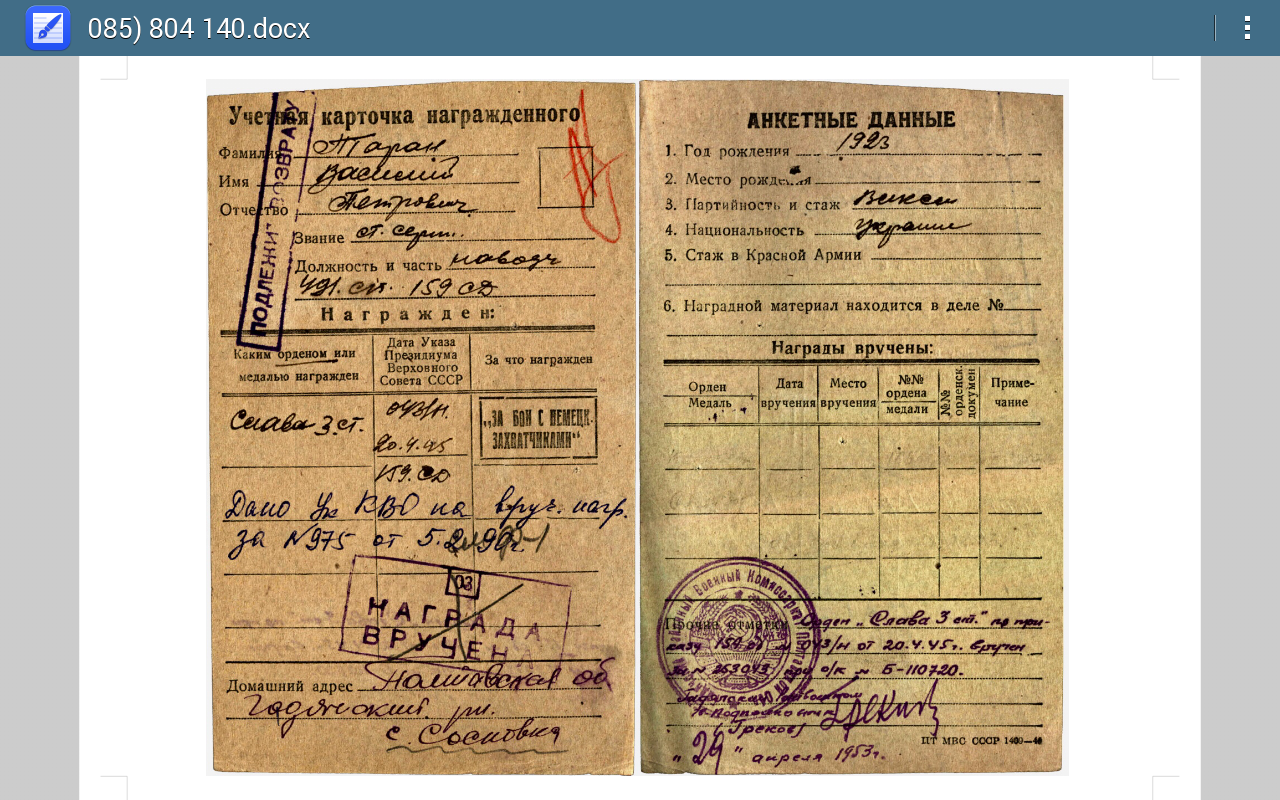 085) 804 140.docx
Учетная карточка награжденного
Фамилия Таран
Имя Василий
Отчество Петрович
Звание ст. серж.
Должность и часть наводч
491. сп. 159 СД
ПОДЛЕЖИТ ВОЗВРАТУ
Награжден:
Каким орденом или медалью награжден
Дата Указа Президиума Верховного Совета СССР
За что награжден
Слава 3 ст.
043/н.
20.4.45
159. СД
„ЗА БОИ С НЕМЕЦК.
ЗАХВАТЧИКАМИ"
Дано Ук КВО на вруч. нагр.
за №975 от 5.2
03
НАГРАДА
ВРУЧЕНА
Домашний адрес Полтавская об
Гадячский рн.
с. Сосновка
АНКЕТНЫЕ ДАННЫЕ
1. Год рождения 1923
2. Место рождения
3. Партийность и стаж
4. Национальность украин
5. Стаж в Красной Армии
6. Наградной материал находится в деле №
Награды вручены:
Орден Медаль
Дата вручения
Место вручения
№№ ордена медали
№№ орденск. докумен
Примечание
Прочие отметки Орден „Слава 3 ст." по при-
казу 159 сд № 043/н от 20.4.45 г. вручен
за № 363043 о/к № Б-110720.
(Греков)
„29" апреля 1953 г.
ЦТ МВС СССР